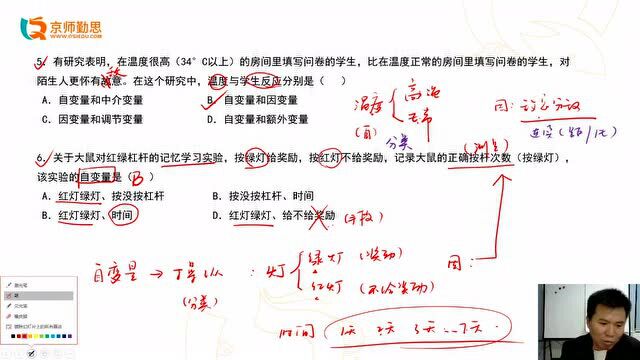 京师勤思
WWW.QSIEDU.COM
5. 有研究表明，在温度很高（34°C以上）的房间里填写问卷的学生，比在温度正常的房间里填写问卷的学生，对
陌生人更怀有故意。在这个研究中，温度与学生反应分别是（ ）
敌
A. 自变量和中介变量 B. 自变量和因变量
C. 因变量和调节变量 D. 自变量和额外变量
温度 高温
正常
(自) 分类
因：
(测量)
6. 关于大鼠对红绿杠杆的记忆学习实验，按绿灯给奖励，按红灯不给奖励，记录大鼠的正确按杆次数（按绿灯），
该实验的自变量是（B）
A. 红灯绿灯、按没按杠杆 B. 按没按杠杆、时间
B. 红灯绿灯、时间 D. 红灯绿灯、给不给奖励
自变量 → 操纵：灯 绿灯（奖励）
红灯（不给奖励）
(分类)
因：
时间 1天 2天 3天 ... 7天
激光笔
笔
荧光笔
橡皮擦